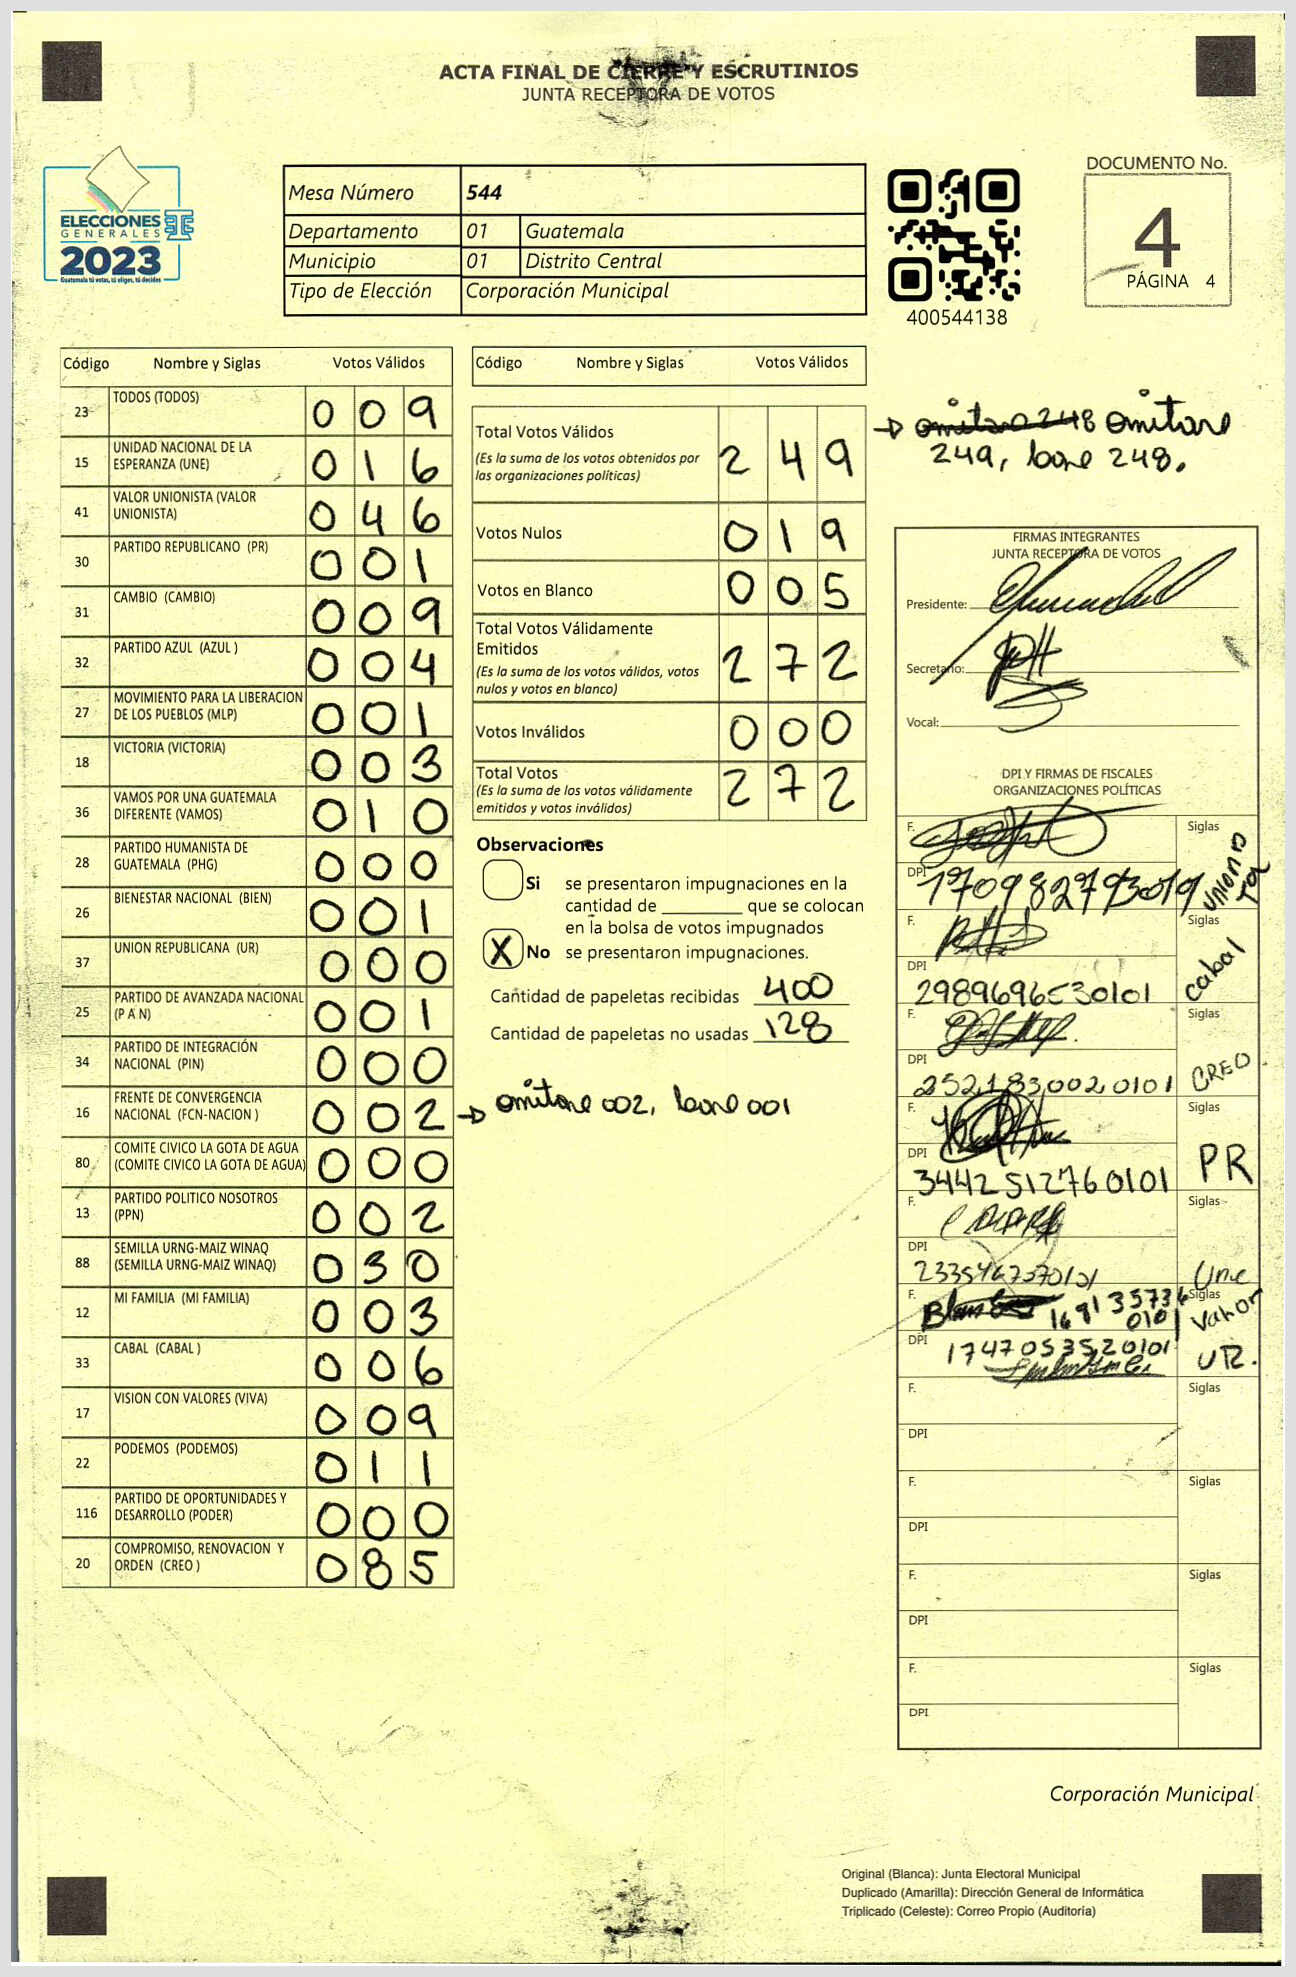 ACTA FINAL DE CIERRE Y ESCRUTINIOS
JUNTA RECEPTORA DE VOTOS
ELECCIONES
GENERALES
2023
Guatemala tú votas, tú eliges, tú decides
Mesa Número 544
Departamento 01 Guatemala
Municipio 01 Distrito Central
Tipo de Elección Corporación Municipal
400544138
DOCUMENTO No.
4
PÁGINA 4
Código Nombre y Siglas Votos Válidos
23 TODOS (TODOS) 0 0 9
15 UNIDAD NACIONAL DE LA ESPERANZA (UNE) 0 1 6
41 VALOR UNIONISTA (VALOR UNIONISTA) 0 4 6
30 PARTIDO REPUBLICANO (PR) 0 0 1
31 CAMBIO (CAMBIO) 0 0 9
32 PARTIDO AZUL (AZUL ) 0 0 4
27 MOVIMIENTO PARA LA LIBERACION DE LOS PUEBLOS (MLP) 0 0 1
18 VICTORIA (VICTORIA) 0 0 3
36 VAMOS POR UNA GUATEMALA DIFERENTE (VAMOS) 0 1 0
28 PARTIDO HUMANISTA DE GUATEMALA (PHG) 0 0 0
26 BIENESTAR NACIONAL (BIEN) 0 0 1
37 UNION REPUBLICANA (UR) 0 0 0
25 PARTIDO DE AVANZADA NACIONAL (P A N) 0 0 1
34 PARTIDO DE INTEGRACIÓN NACIONAL (PIN) 0 0 0
16 FRENTE DE CONVERGENCIA NACIONAL (FCN-NACION ) 0 0 2
→ omitase 002, lease 001
80 COMITE CIVICO LA GOTA DE AGUA (COMITE CIVICO LA GOTA DE AGUA) 0 0 0
13 PARTIDO POLITICO NOSOTROS (PPN) 0 0 2
88 SEMILLA URNG-MAIZ WINAQ (SEMILLA URNG-MAIZ WINAQ) 0 3 0
12 MI FAMILIA (MI FAMILIA) 0 0 3
33 CABAL (CABAL ) 0 0 6
17 VISION CON VALORES (VIVA) 0 0 9
22 PODEMOS (PODEMOS) 0 1 1
116 PARTIDO DE OPORTUNIDADES Y DESARROLLO (PODER) 0 0 0
20 COMPROMISO, RENOVACION Y ORDEN (CREO ) 0 8 5
Código Nombre y Siglas Votos Válidos
Total Votos Válidos 2 4 9
(Es la suma de los votos obtenidos por
las organizaciones políticas)
Votos Nulos 0 1 9
Votos en Blanco 0 0 5
Total Votos Válidamente
Emitidos 2 7 2
(Es la suma de los votos válidos, votos
nulos y votos en blanco)
Votos Inválidos 0 0 0
Total Votos 2 7 2
(Es la suma de los votos válidamente
emitidos y votos inválidos)
Observaciones
Si se presentaron impugnaciones en la
cantidad de ________ que se colocan
en la bolsa de votos impugnados
X No se presentaron impugnaciones.
Cantidad de papeletas recibidas 400
Cantidad de papeletas no usadas 128
→ omitase 248 omitase
249, lease 248.
FIRMAS INTEGRANTES
JUNTA RECEPTORA DE VOTOS
Presidente:
Secretario:
Vocal:
DPI Y FIRMAS DE FISCALES
ORGANIZACIONES POLÍTICAS
F. Siglas
DPI 170982793019 Unionista
F. Siglas
DPI 2989696530101 cabal
F. Siglas
DPI 2521830020101 CREO
F. Siglas
DPI 3442512760101 PR
F. Siglas
DPI Une
F. Siglas
168135736 0101 Valor
DPI 1747053520101 UR.
F. Siglas
DPI
F. Siglas
DPI
F. Siglas
DPI
F. Siglas
DPI
Corporación Municipal
Original (Blanca): Junta Electoral Municipal
Duplicado (Amarilla): Dirección General de Informática
Triplicado (Celeste): Correo Propio (Auditoría)